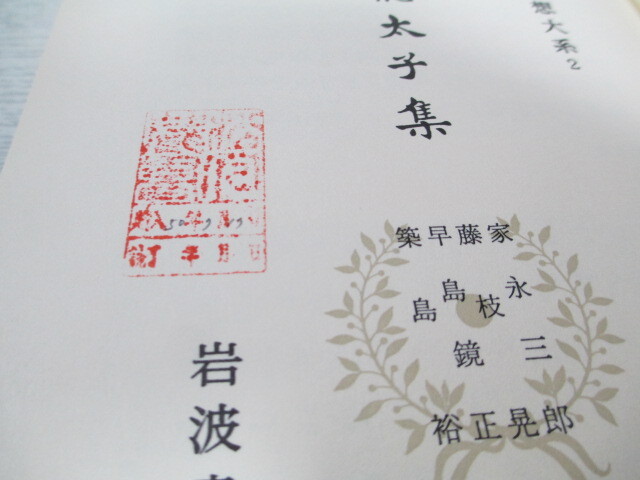 想大系2
太子集
家永三郎
藤枝晃
早島鏡正
築島裕
岩波